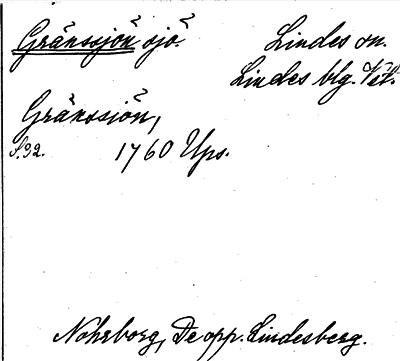 Gränssjön sjö.
Lindes sn.
Lindes blg. Vstl.
Gränssjön,
S.92. 1760 Ups.
Nohrborg, De opp. Lindesberg.